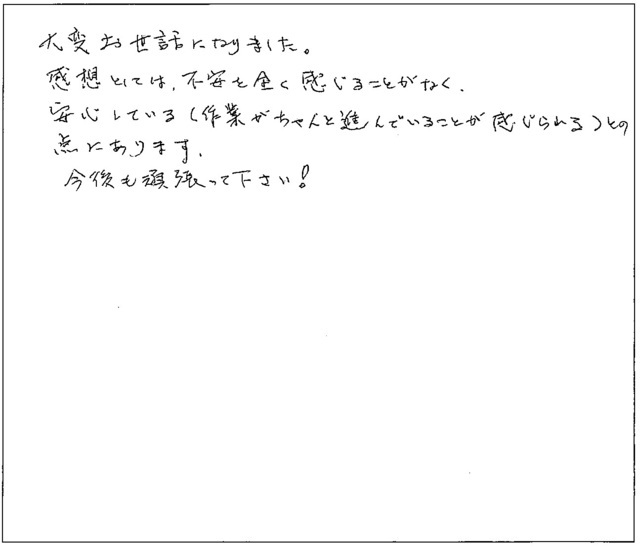 大変お世話になりました。
感想としては、不安を全く感じることがなく、
安心している(作業がちゃんと進んでいることが感じられる)との
点にあります。
今後も頑張って下さい!